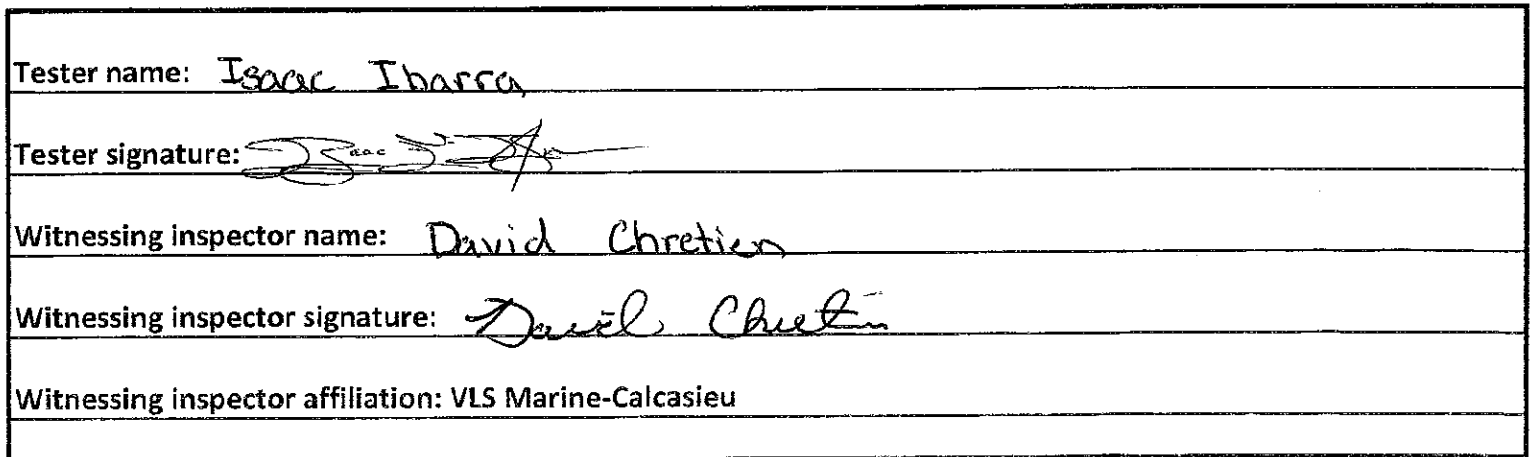 Tester name: Isaac Ibarra
Tester signature: Isaac
Witnessing inspector name: David Chretien
Witnessing inspector signature: David Chretien
Witnessing inspector affiliation: VLS Marine-Calcasieu